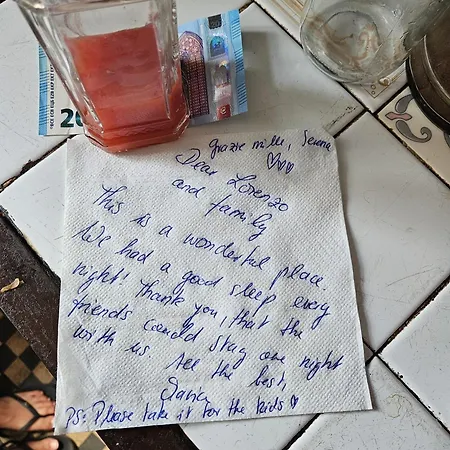 20
grazie mille, Serena
♡♡♡
Dear Lorenzo
and family
This is a wonderful place.
We had a good sleep every
night! Thank you, that the
friends could stay one night
with us. All the best,
PS: Please take it for the kids ♡